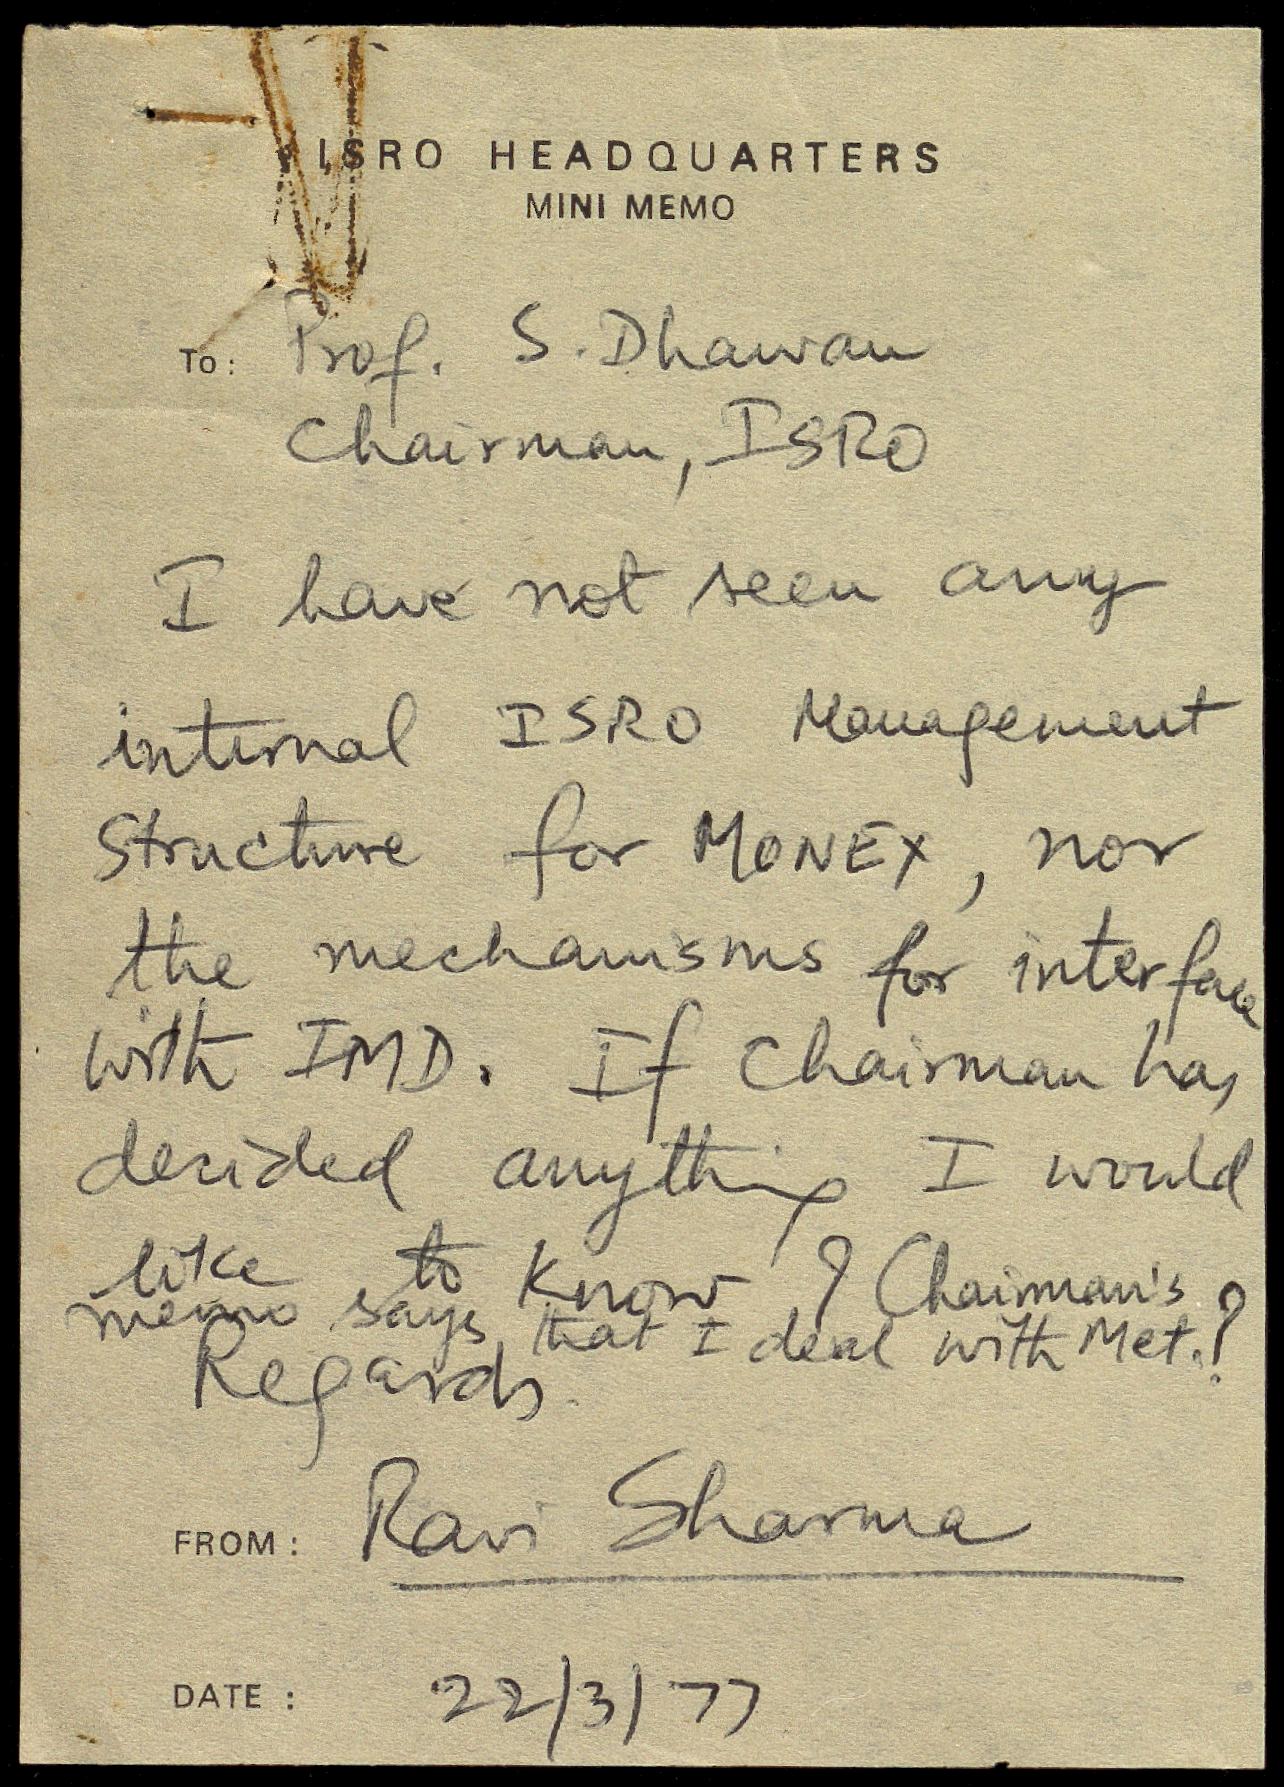 ISRO HEADQUARTERS
MINI MEMO
To: Prof. S. Dhawan
Chairman, ISRO
I have not seen any
internal ISRO Management
Structure for MONEX, nor
the mechanisms for interface
with IMD. If Chairman has
decided anything I would
like to know ? Chairman's
memo says that I deal with Met.?
Regards.
FROM: Ravi Sharma
DATE: 22/3/77